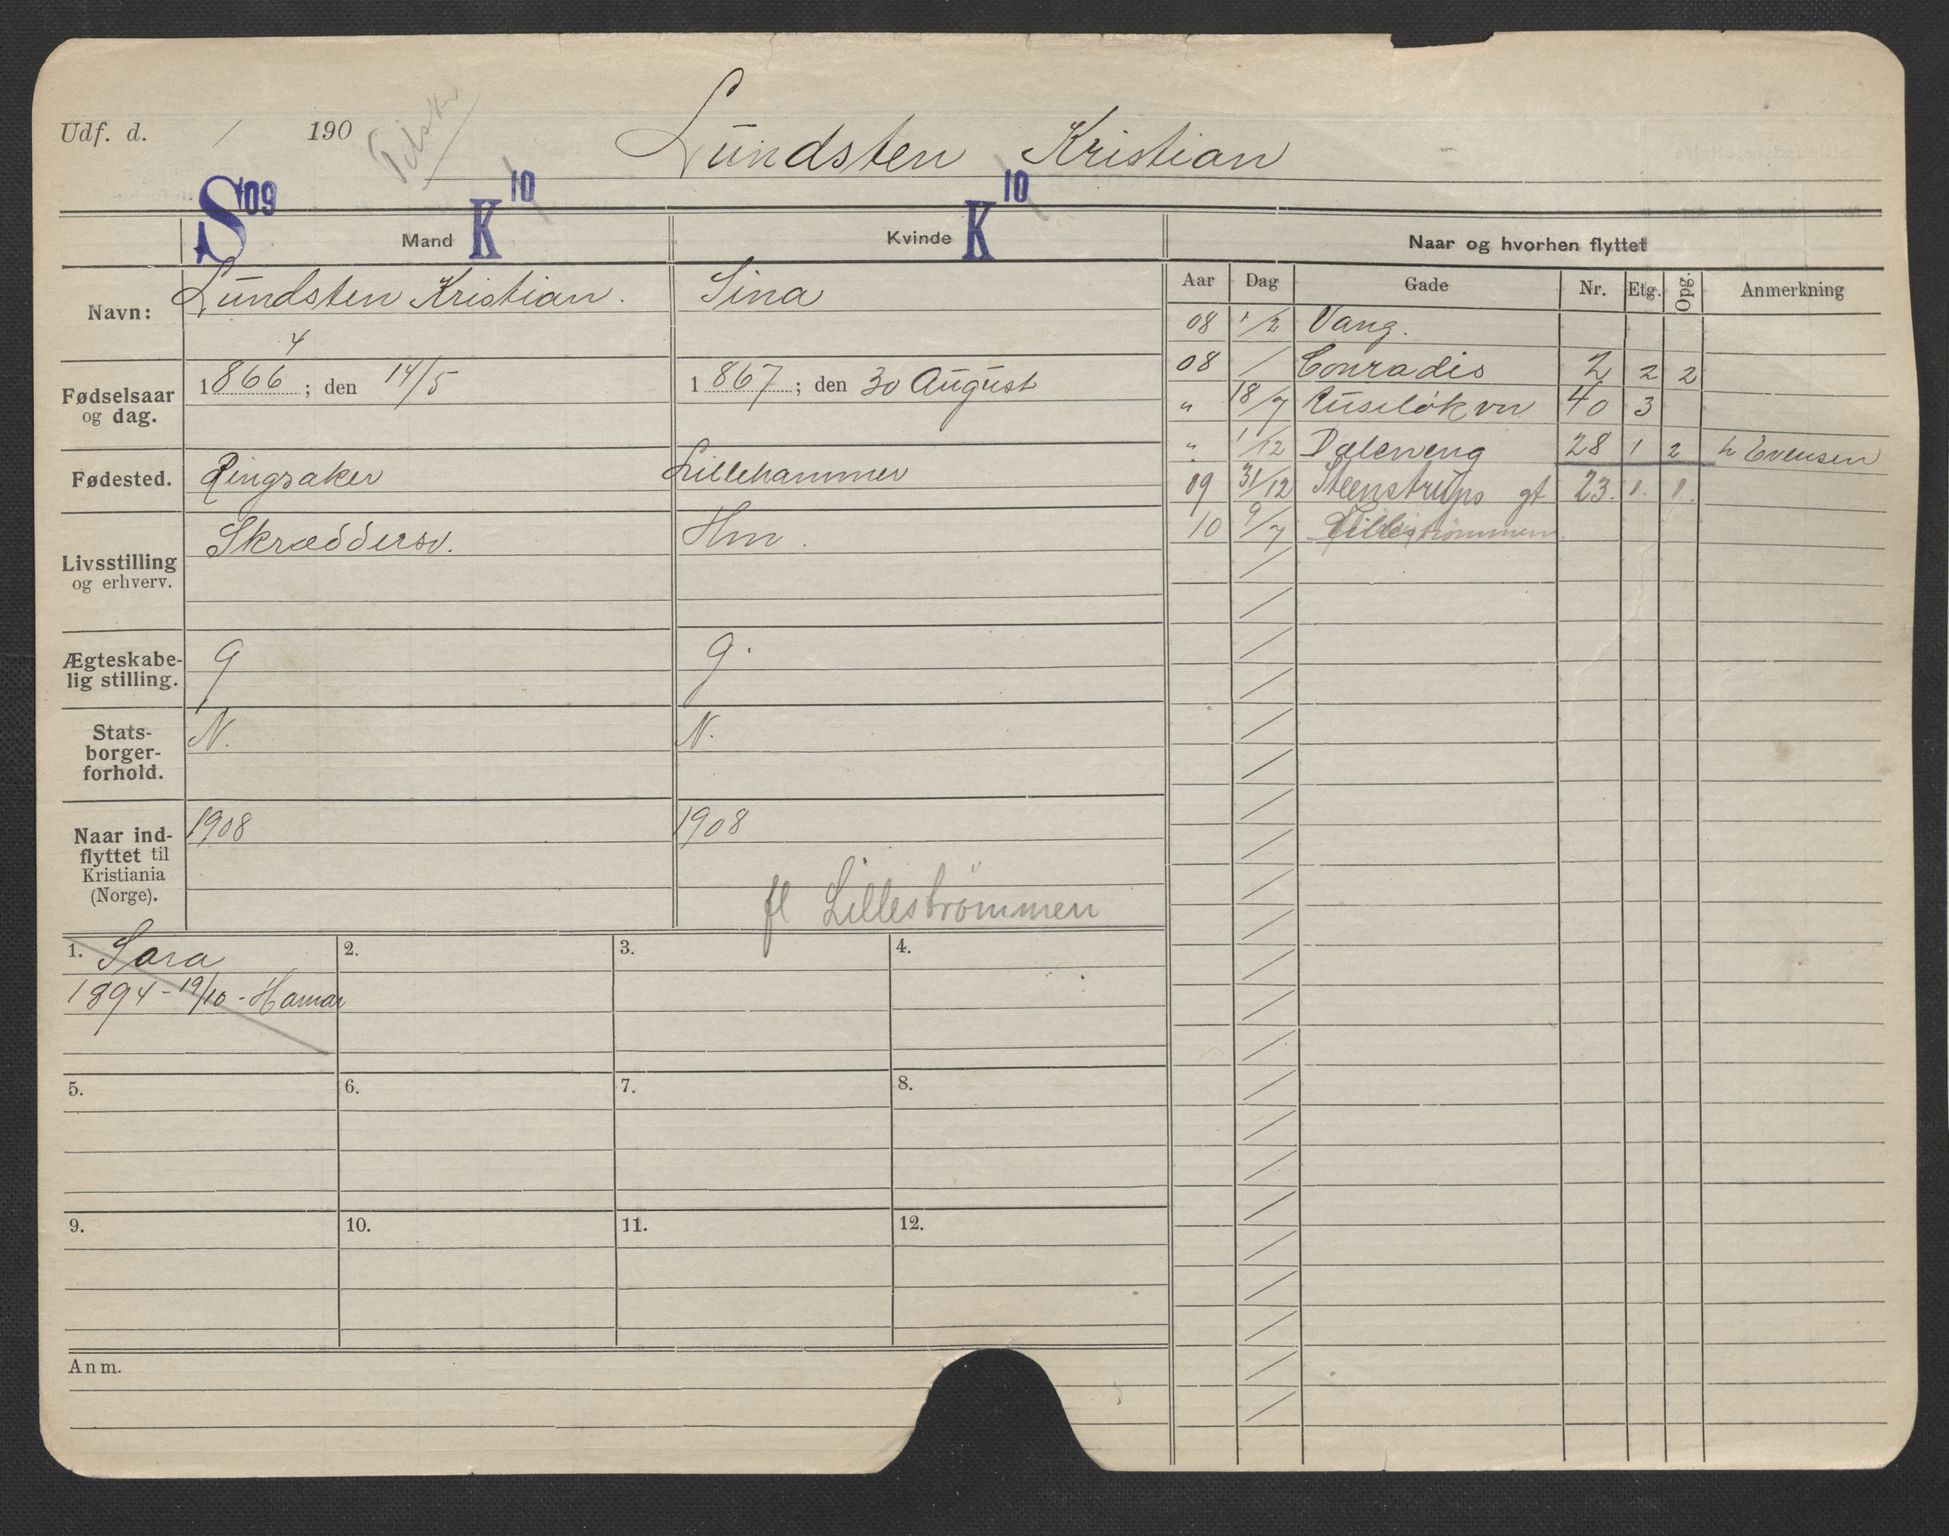 Udf. d. / 190
Lundsten Kristian
S 09 K 10 K 10
Mand Kvinde Naar og hvorhen flyttet
Navn: Lundsten Kristian. Sina
4
Fødselsaar og dag. 1866; den 14/5 1867; den 30 August
Fødested. Ringsaker Lillehammer
Livsstilling og erhverv. Skræddersv. Hm.
Ægteskabe-
lig stilling. g g.
Stats-
borger-
forhold. N. N.
Naar ind-
flyttet til
Kristiania
(Norge). 1908 1908
fl Lillestrømmen
1. Sara
1894 - 19/10 - Hamar
2.
3.
4.
5.
6.
7.
8.
9.
10.
11.
12.
Anm.
Aar Dag Gade Nr. Etg. Opg. Anmerkning
08 1/2 Vang.
08 / Conradis 2 2 2
" 18/7 Ruseløkvn 40 3
" 1/12 Dæleneng 28 1 2 h Evensen
09 31/12 Steenstrups gt 23. 1. 1.
10 9/7 Lillestrømmen.